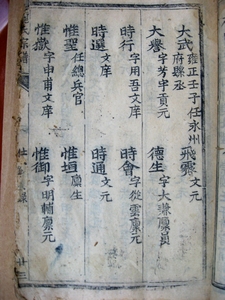 大武 雍正壬子任永州府縣丞
大譽 字芳宇貢元
時行 字用吾文庠
時選 文庠
惟聖 任總兵官
惟嶽 字申甫文庠
飛霖 文元
德生 字大謙廩員
時會 字從雲廩元
時通 文元
惟垣 廩生
惟御 字明輔廩元